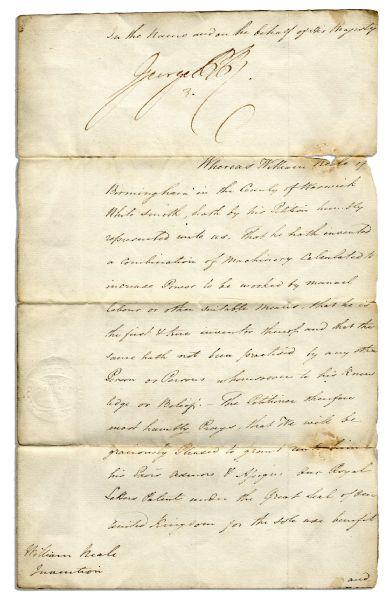 In the Name and on the behalf of His Majesty
George P R
Whereas William Neale of
Birmingham in the County of Warwick
White Smith, hath by his Petition humbly
represented unto us, that he hath invented
a Combination of Machinery Calculated to
increase Power to be worked by manual
labour or other suitable means, that he is
the first & true inventor thereof and that the
same hath not been practised by any other
Person or Persons whomsoever to his Know
ledge or Belief. The Petitioner therefore
most humbly Prays, that We will be
graciously Pleased to grant unto him
his Exors Admors & Assigns Our Royal
Letters Patent under the Great Seal of Our
United Kingdom for the sole use benefit
William Neale
Invention
and